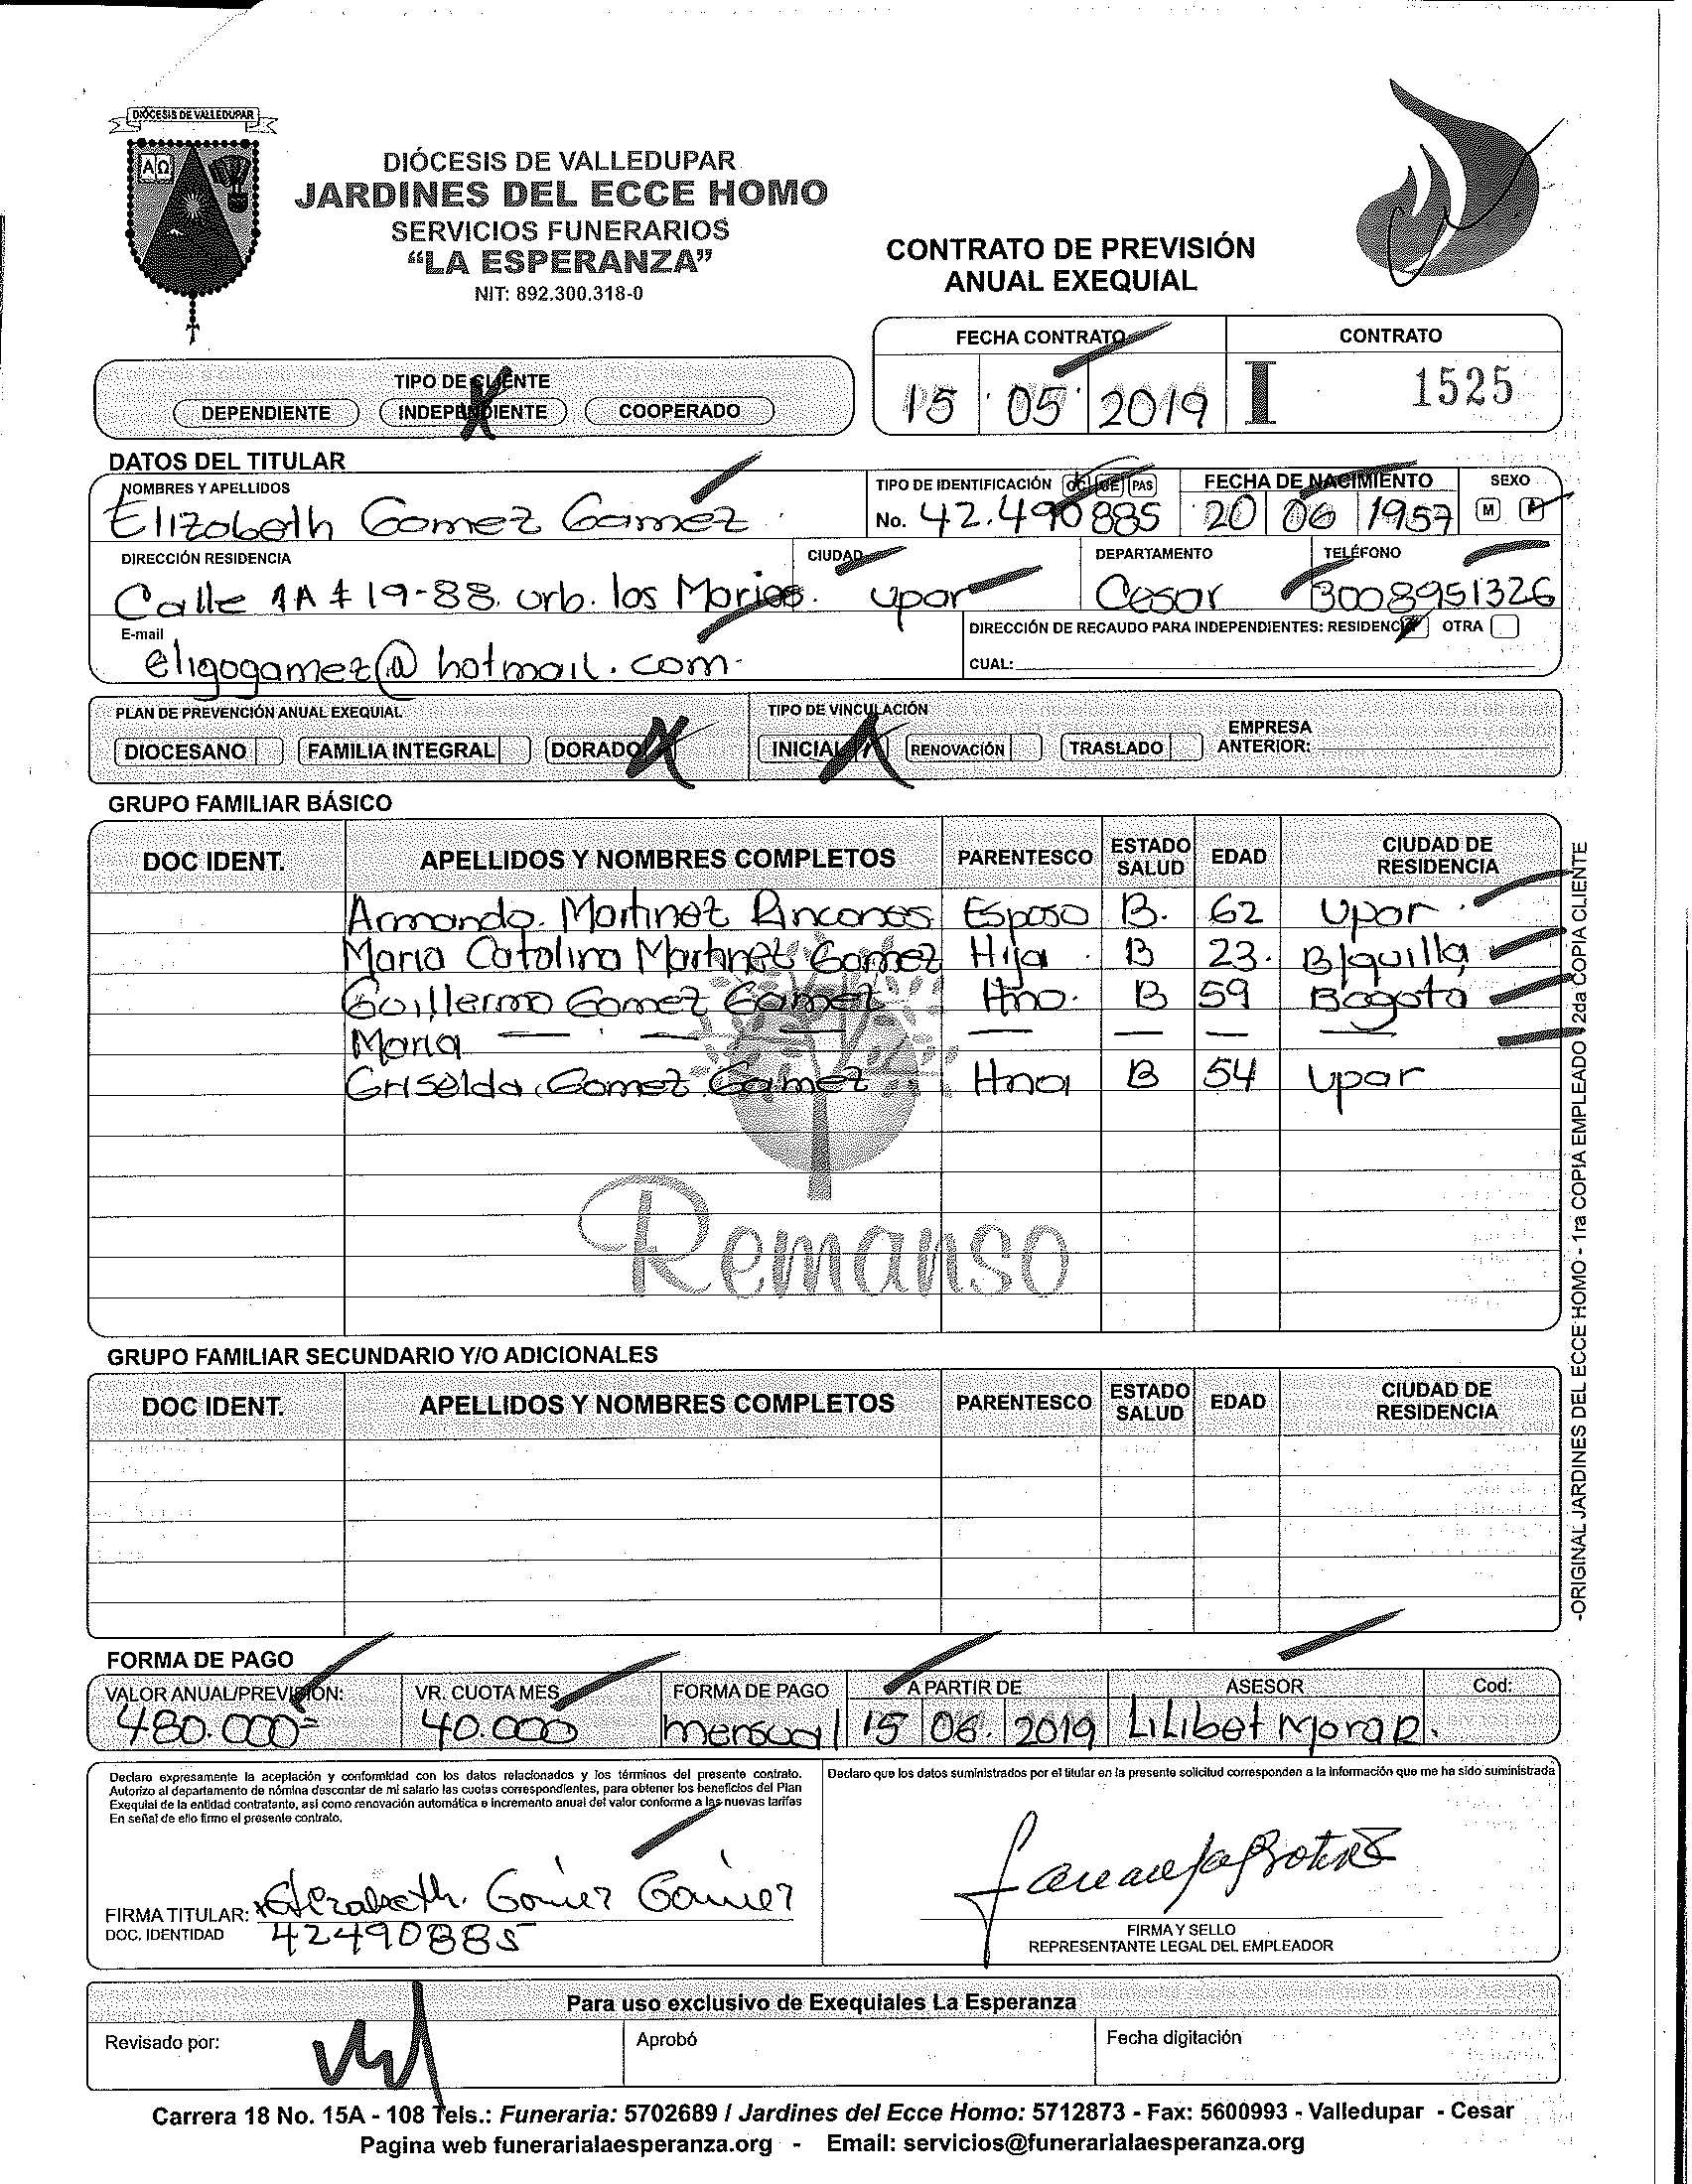 DIÓCESIS DE VALLEDUPAR
AΩ
DIÓCESIS DE VALLEDUPAR
JARDINES DEL ECCE HOMO
SERVICIOS FUNERARIOS
"LA ESPERANZA"
NIT: 892.300.318-0
CONTRATO DE PREVISIÓN
ANUAL EXEQUIAL
FECHA CONTRATO CONTRATO
15 05 2019 I 1525
TIPO DE CLIENTE
DEPENDIENTE INDEPENDIENTE X COOPERADO
DATOS DEL TITULAR
NOMBRES Y APELLIDOS TIPO DE IDENTIFICACIÓN CC CE PAS FECHA DE NACIMIENTO SEXO
Elizabeth Gomez Gamez No. 42.490885 20 06 1957 M F
DIRECCIÓN RESIDENCIA CIUDAD DEPARTAMENTO TELÉFONO
Calle 1A # 19-88. urb. los Marias. Upar Cesar 3008951326
E-mail DIRECCIÓN DE RECAUDO PARA INDEPENDIENTES: RESIDENCIA OTRA
eligogamez@hotmail.com CUAL:
PLAN DE PREVENCIÓN ANUAL EXEQUIAL TIPO DE VINCULACIÓN EMPRESA
DIOCESANO FAMILIA INTEGRAL DORADO X INICIAL X RENOVACIÓN TRASLADO ANTERIOR:
GRUPO FAMILIAR BÁSICO
DOC IDENT. APELLIDOS Y NOMBRES COMPLETOS PARENTESCO ESTADO SALUD EDAD CIUDAD DE RESIDENCIA
Armando. Martinez Rincones Esposo B. 62 Upar.
Maria Catalina Martinez Gamez Hija B 23. B/quilla
Guillermo Gomez Gamez Hno. B 59 Bogota
Maria — — — — — — —
Griselda Gomez Gamez Hna B 54 Upar
Remanso
GRUPO FAMILIAR SECUNDARIO Y/O ADICIONALES
DOC IDENT. APELLIDOS Y NOMBRES COMPLETOS PARENTESCO ESTADO SALUD EDAD CIUDAD DE RESIDENCIA
-ORIGINAL JARDINES DEL ECCE HOMO - 1ra COPIA EMPLEADO - 2da COPIA CLIENTE
FORMA DE PAGO
VALOR ANUAL/PREVISIÓN: VR. CUOTA MES FORMA DE PAGO A PARTIR DE ASESOR Cod:
480.000= 40.000 mensual 15 06. 2019 Lilibet Mora R.
Declaro expresamente la aceptación y conformidad con los datos relacionados y los términos del presente contrato.
Autorizo al departamento de nómina descontar de mi salario las cuotas correspondientes, para obtener los beneficios del Plan
Exequial de la entidad contratante, asi como renovación automática e incremento anual del valor conforme a las nuevas tarifas
En señal de ello firmo el presente contrato.
Declaro que los datos suministrados por el titular en la presente solicitud corresponden a la información que me ha sido suministrada
FIRMA TITULAR: Elizabeth. Gomez Gamez
DOC. IDENTIDAD 42490885
FIRMA Y SELLO
REPRESENTANTE LEGAL DEL EMPLEADOR
Para uso exclusivo de Exequiales La Esperanza
Revisado por: Aprobó Fecha digitación
Carrera 18 No. 15A - 108 Tels.: Funeraria: 5702689 / Jardines del Ecce Homo: 5712873 - Fax: 5600993 - Valledupar - Cesar
Pagina web funerarialaesperanza.org - Email: servicios@funerarialaesperanza.org